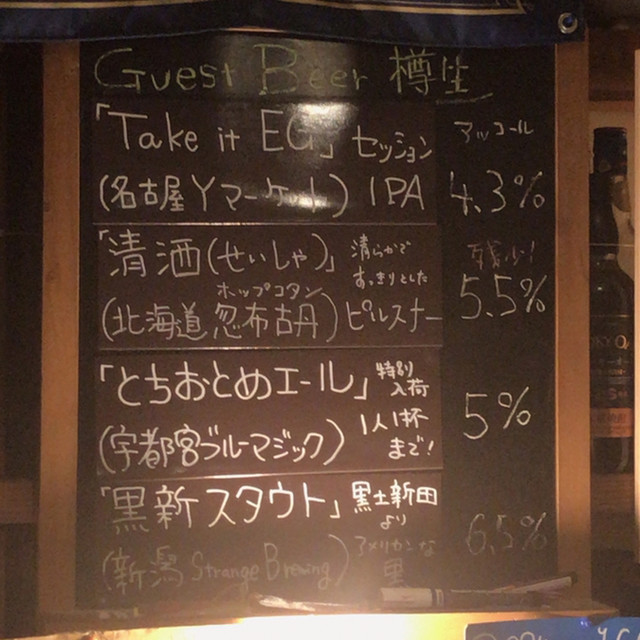 Guest Beer 樽生
「Take it EG」セッション アッコール
(名古屋 Yマーケット) IPA 4.3%
「清酒(せいしゃ)」清らかで すっきりとした 残少!
ホップコタン
(北海道 忽布古丹) ピルスナー 5.5%
「とちおとめエール」特別 入荷
(宇都宮ブルーマジック) 1人1杯 まで! 5%
「黒新スタウト」黒土新田 より
(新潟 Strange Brewing) アメリカンな 黒 6.5%